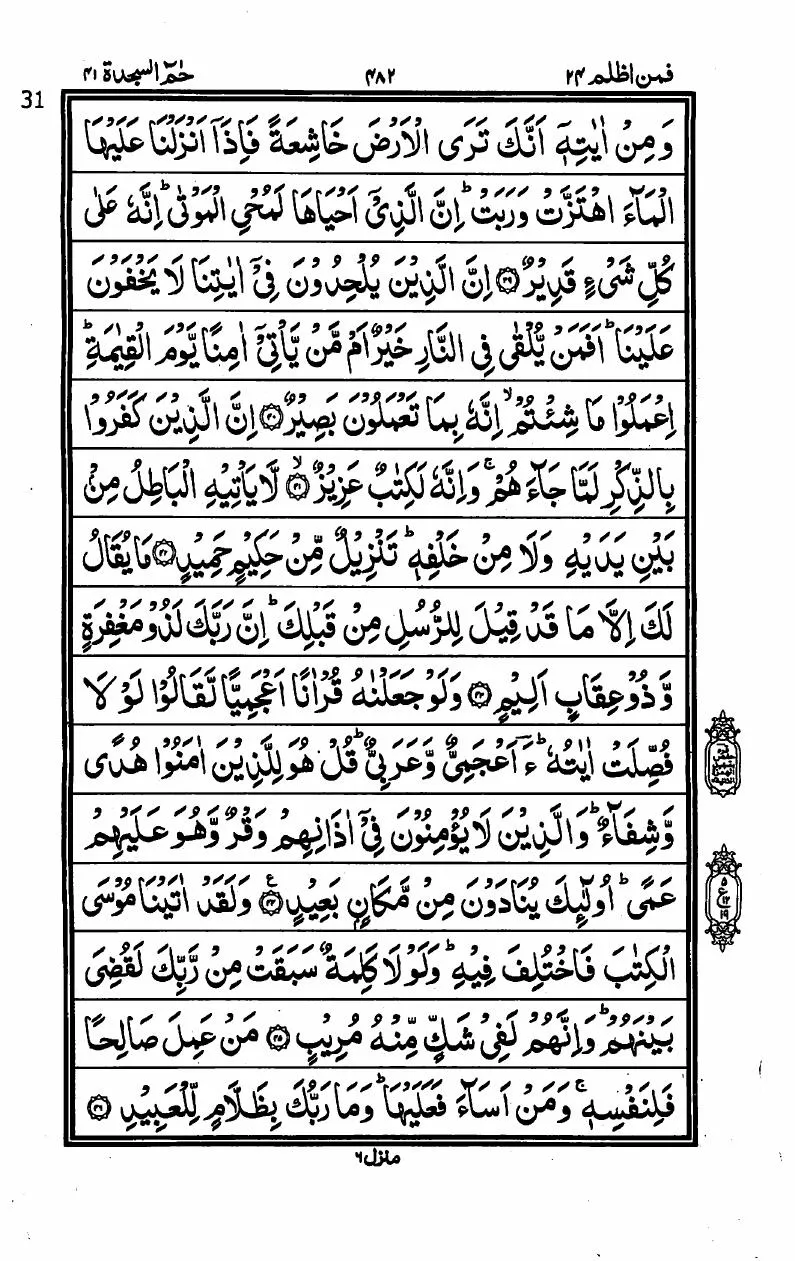 فمن اظلم ٢٤ ٤٨٢ حٰمٓ السجدة ٤١
31
وَمِنْ اٰيٰتِهٖٓ اَنَّكَ تَرَى الْاَرْضَ خَاشِعَةً فَاِذَآ اَنْزَلْنَا عَلَيْهَا
الْمَآءَ اهْتَزَّتْ وَرَبَتْ ؕ اِنَّ الَّذِيْٓ اَحْيَاهَا لَمُحْيِ الْمَوْتٰى ؕ اِنَّهٗ عَلٰى
كُلِّ شَيْءٍ قَدِيْرٌ ۝٣٩ اِنَّ الَّذِيْنَ يُلْحِدُوْنَ فِيْٓ اٰيٰتِنَا لَا يَخْفَوْنَ
عَلَيْنَا ؕ اَفَمَنْ يُّلْقٰى فِي النَّارِ خَيْرٌ اَمْ مَّنْ يَّاْتِيْٓ اٰمِنًا يَّوْمَ الْقِيٰمَةِ ؕ
اِعْمَلُوْا مَا شِئْتُمْ ۙ اِنَّهٗ بِمَا تَعْمَلُوْنَ بَصِيْرٌ ۝٤٠ اِنَّ الَّذِيْنَ كَفَرُوْا
بِالذِّكْرِ لَمَّا جَآءَهُمْ ۚ وَاِنَّهٗ لَكِتٰبٌ عَزِيْزٌ ۙ۝٤١ لَّا يَاْتِيْهِ الْبَاطِلُ مِنْۢ
بَيْنِ يَدَيْهِ وَلَا مِنْ خَلْفِهٖ ؕ تَنْزِيْلٌ مِّنْ حَكِيْمٍ حَمِيْدٍ ۝٤٢ مَا يُقَالُ
لَكَ اِلَّا مَا قَدْ قِيْلَ لِلرُّسُلِ مِنْ قَبْلِكَ ؕ اِنَّ رَبَّكَ لَذُوْ مَغْفِرَةٍ
وَّذُوْ عِقَابٍ اَلِيْمٍ ۝٤٣ وَلَوْ جَعَلْنٰهُ قُرْاٰنًا اَعْجَمِيًّا لَّقَالُوْا لَوْ لَا
فُصِّلَتْ اٰيٰتُهٗ ؕ ءَؔاَعْجَمِيٌّ وَّعَرَبِيٌّ ؕ قُلْ هُوَ لِلَّذِيْنَ اٰمَنُوْا هُدًى
وَّشِفَآءٌ ؕ وَالَّذِيْنَ لَا يُؤْمِنُوْنَ فِيْٓ اٰذَانِهِمْ وَقْرٌ وَّهُوَ عَلَيْهِمْ
عَمًى ؕ اُولٰٓئِكَ يُنَادَوْنَ مِنْ مَّكَانٍۢ بَعِيْدٍ ۝٤٤ ع وَلَقَدْ اٰتَيْنَا مُوْسَى
ع
٥
١٢
١٩
الْكِتٰبَ فَاخْتُلِفَ فِيْهِ ؕ وَلَوْلَا كَلِمَةٌ سَبَقَتْ مِنْ رَّبِّكَ لَقُضِيَ
بَيْنَهُمْ ؕ وَاِنَّهُمْ لَفِيْ شَكٍّ مِّنْهُ مُرِيْبٍ ۝٤٥ مَنْ عَمِلَ صَالِحًا
فَلِنَفْسِهٖ ۚ وَمَنْ اَسَآءَ فَعَلَيْهَا ؕ وَمَا رَبُّكَ بِظَلَّامٍ لِّلْعَبِيْدِ ۝٤٦
منزل ٦